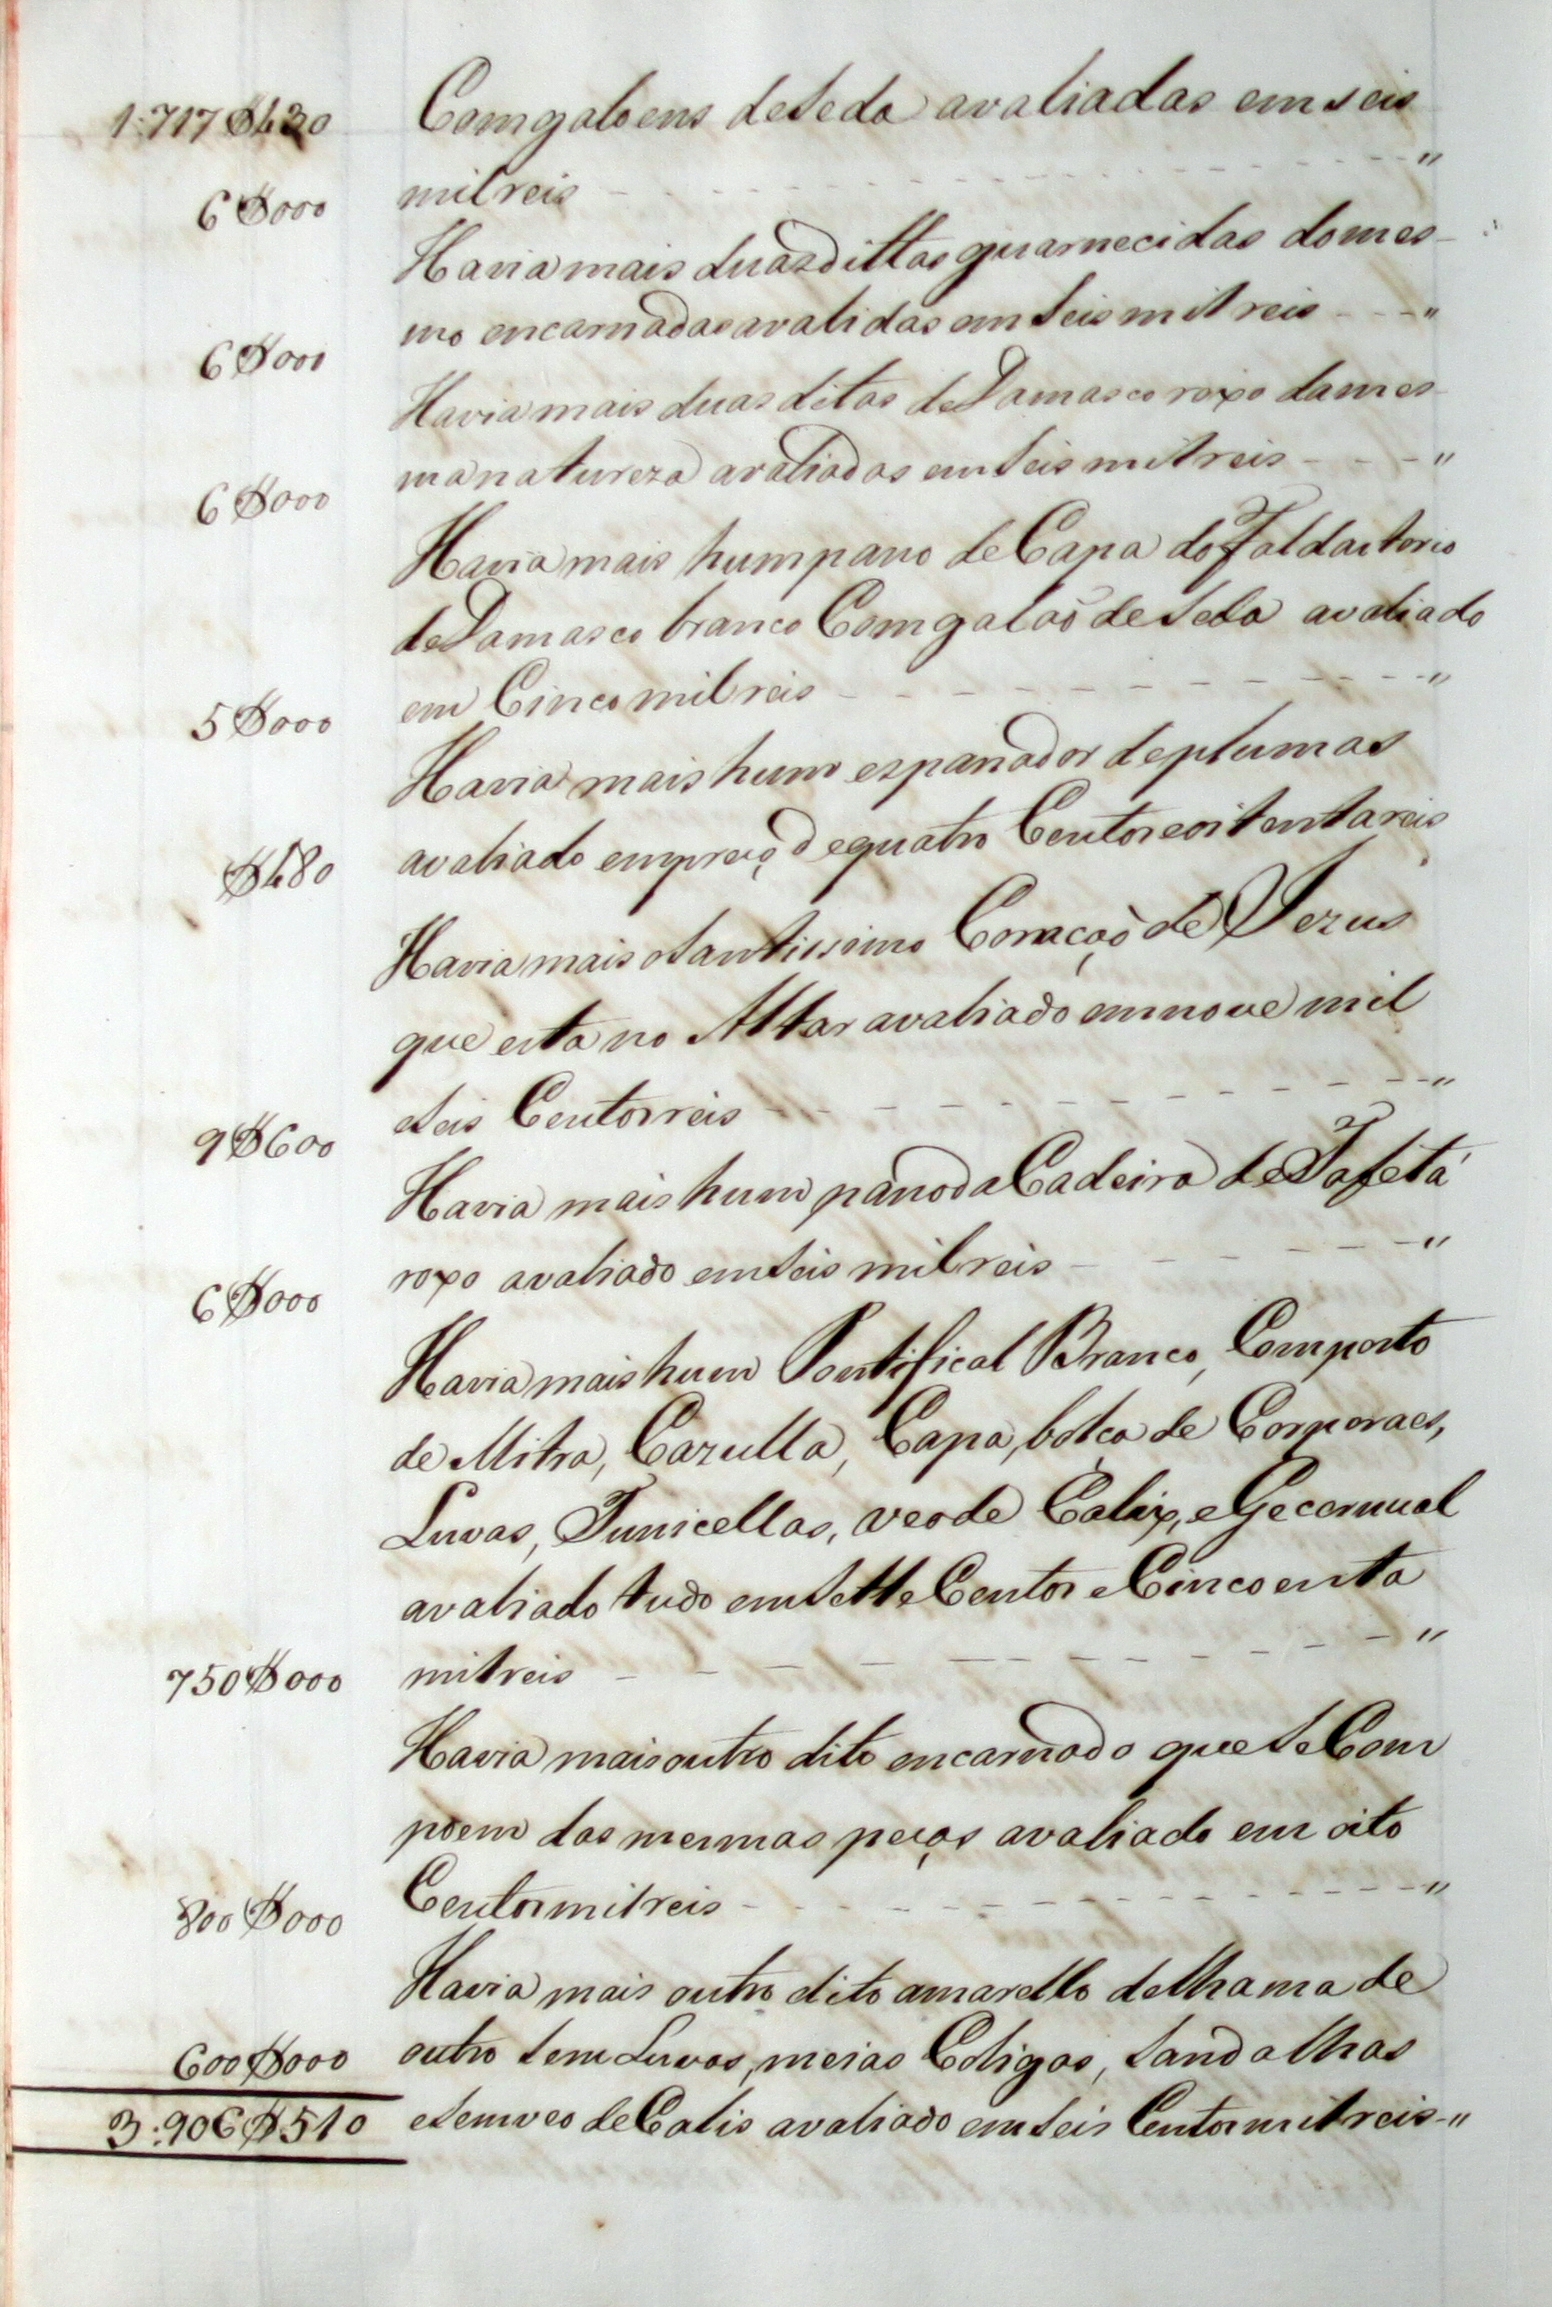 1:717$430 Com galoens de Seda avaliadas em seis
6$000 mil reis - - - - - - - - - - - - - "
Havia mais duas dittas guarnecidas do mes-
6$000 mo encarnadas avalidas em Seis mil reis - - - "
Havia mais duas ditas de Damasco roixo da mes-
6$000 ma natureza avaliadas em Seis mil reis - - - "
Havia mais hum pano de Capa do Faldastorio
de Damasco branco Com galaõ de Seda avaliado
5$000 em Cinco mil reis - - - - - - - - - - "
Havia mais hum espanador de plumas
$480 avaliado em preço de quatro Centos e oitenta reis
Havia mais o Santissimo Coração de Jezus
que esta no Altar avaliado em nove mil
9$600 e Seis Centos reis - - - - - - - - - - "
Havia mais hum pano da Cadeira de Tafetá
6$000 roxo avaliado em Seis mil reis - - - - - - "
Havia mais hum Pontifical Branco, Composto
de Mitra, Cazulla, Capa, bolça de Corporaes,
Luvas, Tunicellas, veo de Calix, e Gecomual
avaliado tudo em Sette Centos e Cincoenta
750$000 mil reis - - - - - - - - - - - "
Havia mais outro dito encarnado que Se Com
poem das mesmas peças avaliado em oito
800$000 Centos mil reis - - - - - - - - - - "
Havia mais outro dito amarello de lhama de
600$000 outro Sem Luvas, meias Coligas, Sandalhas
3:906$510 e Sem veo de Calis avaliado em Seis Centos mil reis - "